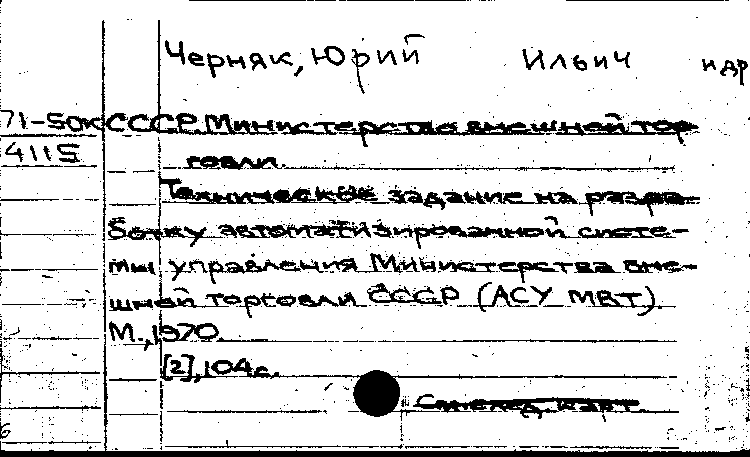 Черняк, Юрий Ильич и др
71-50к СССР. Министерство внешней тор-
4115 говли.
Техническое задание на разра-
ботку автоматизированной систе-
мы управления Министерства вне-
шней торговли СССР (АСУ МВТ).
М., 1970.
[2], 104 с.
См. след. карт.
6